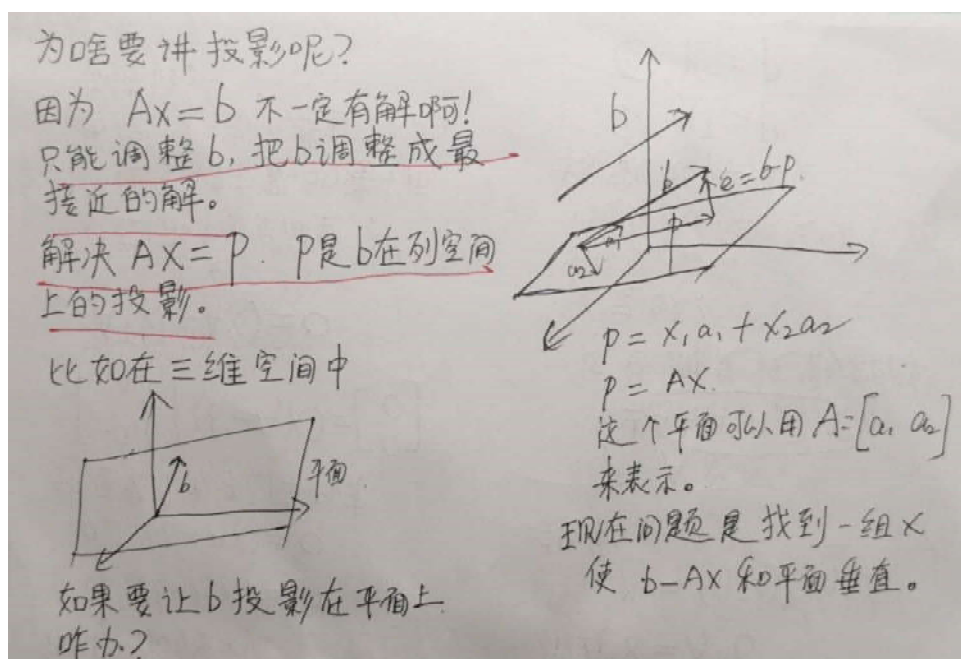 为啥要讲投影呢?
因为 Ax=b 不一定有解啊!
只能调整b,把b调整成最
接近的解。
解决 Ax=p. p是b在列空间
上的投影。
比如在三维空间中
b
平面
如果要让b投影在平面上
咋办?
b
b
e=b-p.
a1
p
a2
p=x₁a₁+x₂a₂
p=Ax.
这个平面可以用A=[a₁ a₂]
来表示。
现在问题是找到一组x
使 b-Ax和平面垂直。